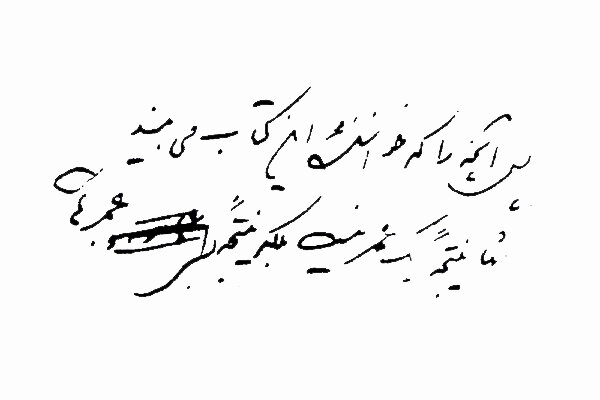 پس آنچه را که خوانندهٔ این کتاب می‌بیند
نه نتیجهٔ یک عمر نیست بلکه نتیجهٔ عمرها